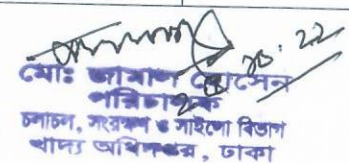 মোঃ জামাল হোসেন
পরিচালক
চলাচল, সংরক্ষণ ও সাইলো বিভাগ
খাদ্য অধিদপ্তর, ঢাকা